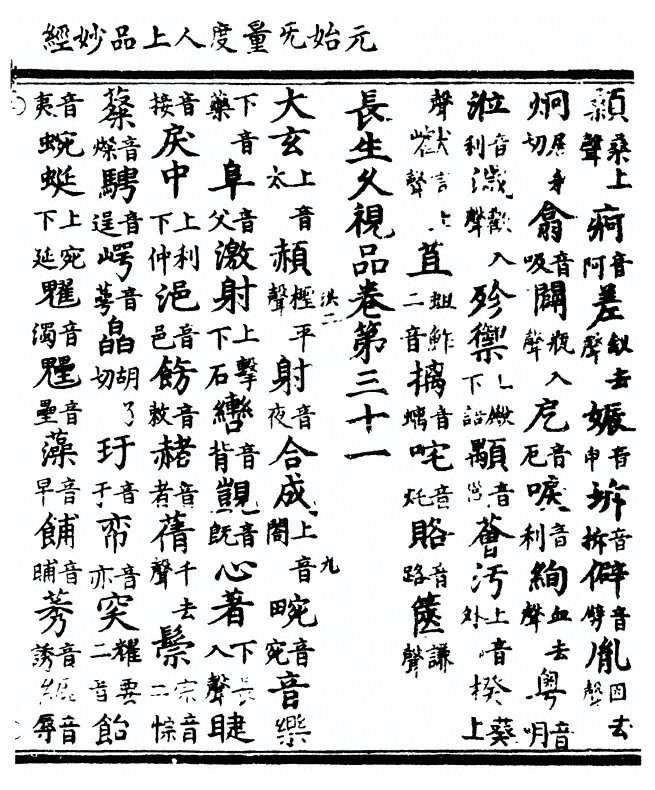 元始旡量度人上品妙經
顙桑上聲痾音阿差釵去聲娠音申坼音拆僻音劈胤因去聲
切翕音吸闢瓶入聲戹音厄唳音利絢血去聲粵音
涖音利濊歡入聲殄禦下詣顒音薈污上音外揆葵上
聲獻言上聲苴蛆鮓二音摛音螭咤音奼賂音路篋謙聲
長生久視品卷第三十一 洪二
大玄上音太赬檉平聲射音夜合成上音閤畹音宛音樂 九
下音藥阜音父激射上擊下石轡音背覬音旣心著下長入聲睫
音接戾中上利下仲浥音邑飭音敕赭音者蒨千去聲鬃宗悰二音
音燦騁音逞崿音蕚皛胡了切玗音于帟音亦突耀要二音飴
音夷蜿蜒上宛下延音濁音壘藻音早餔音晡莠音誘縟音辱